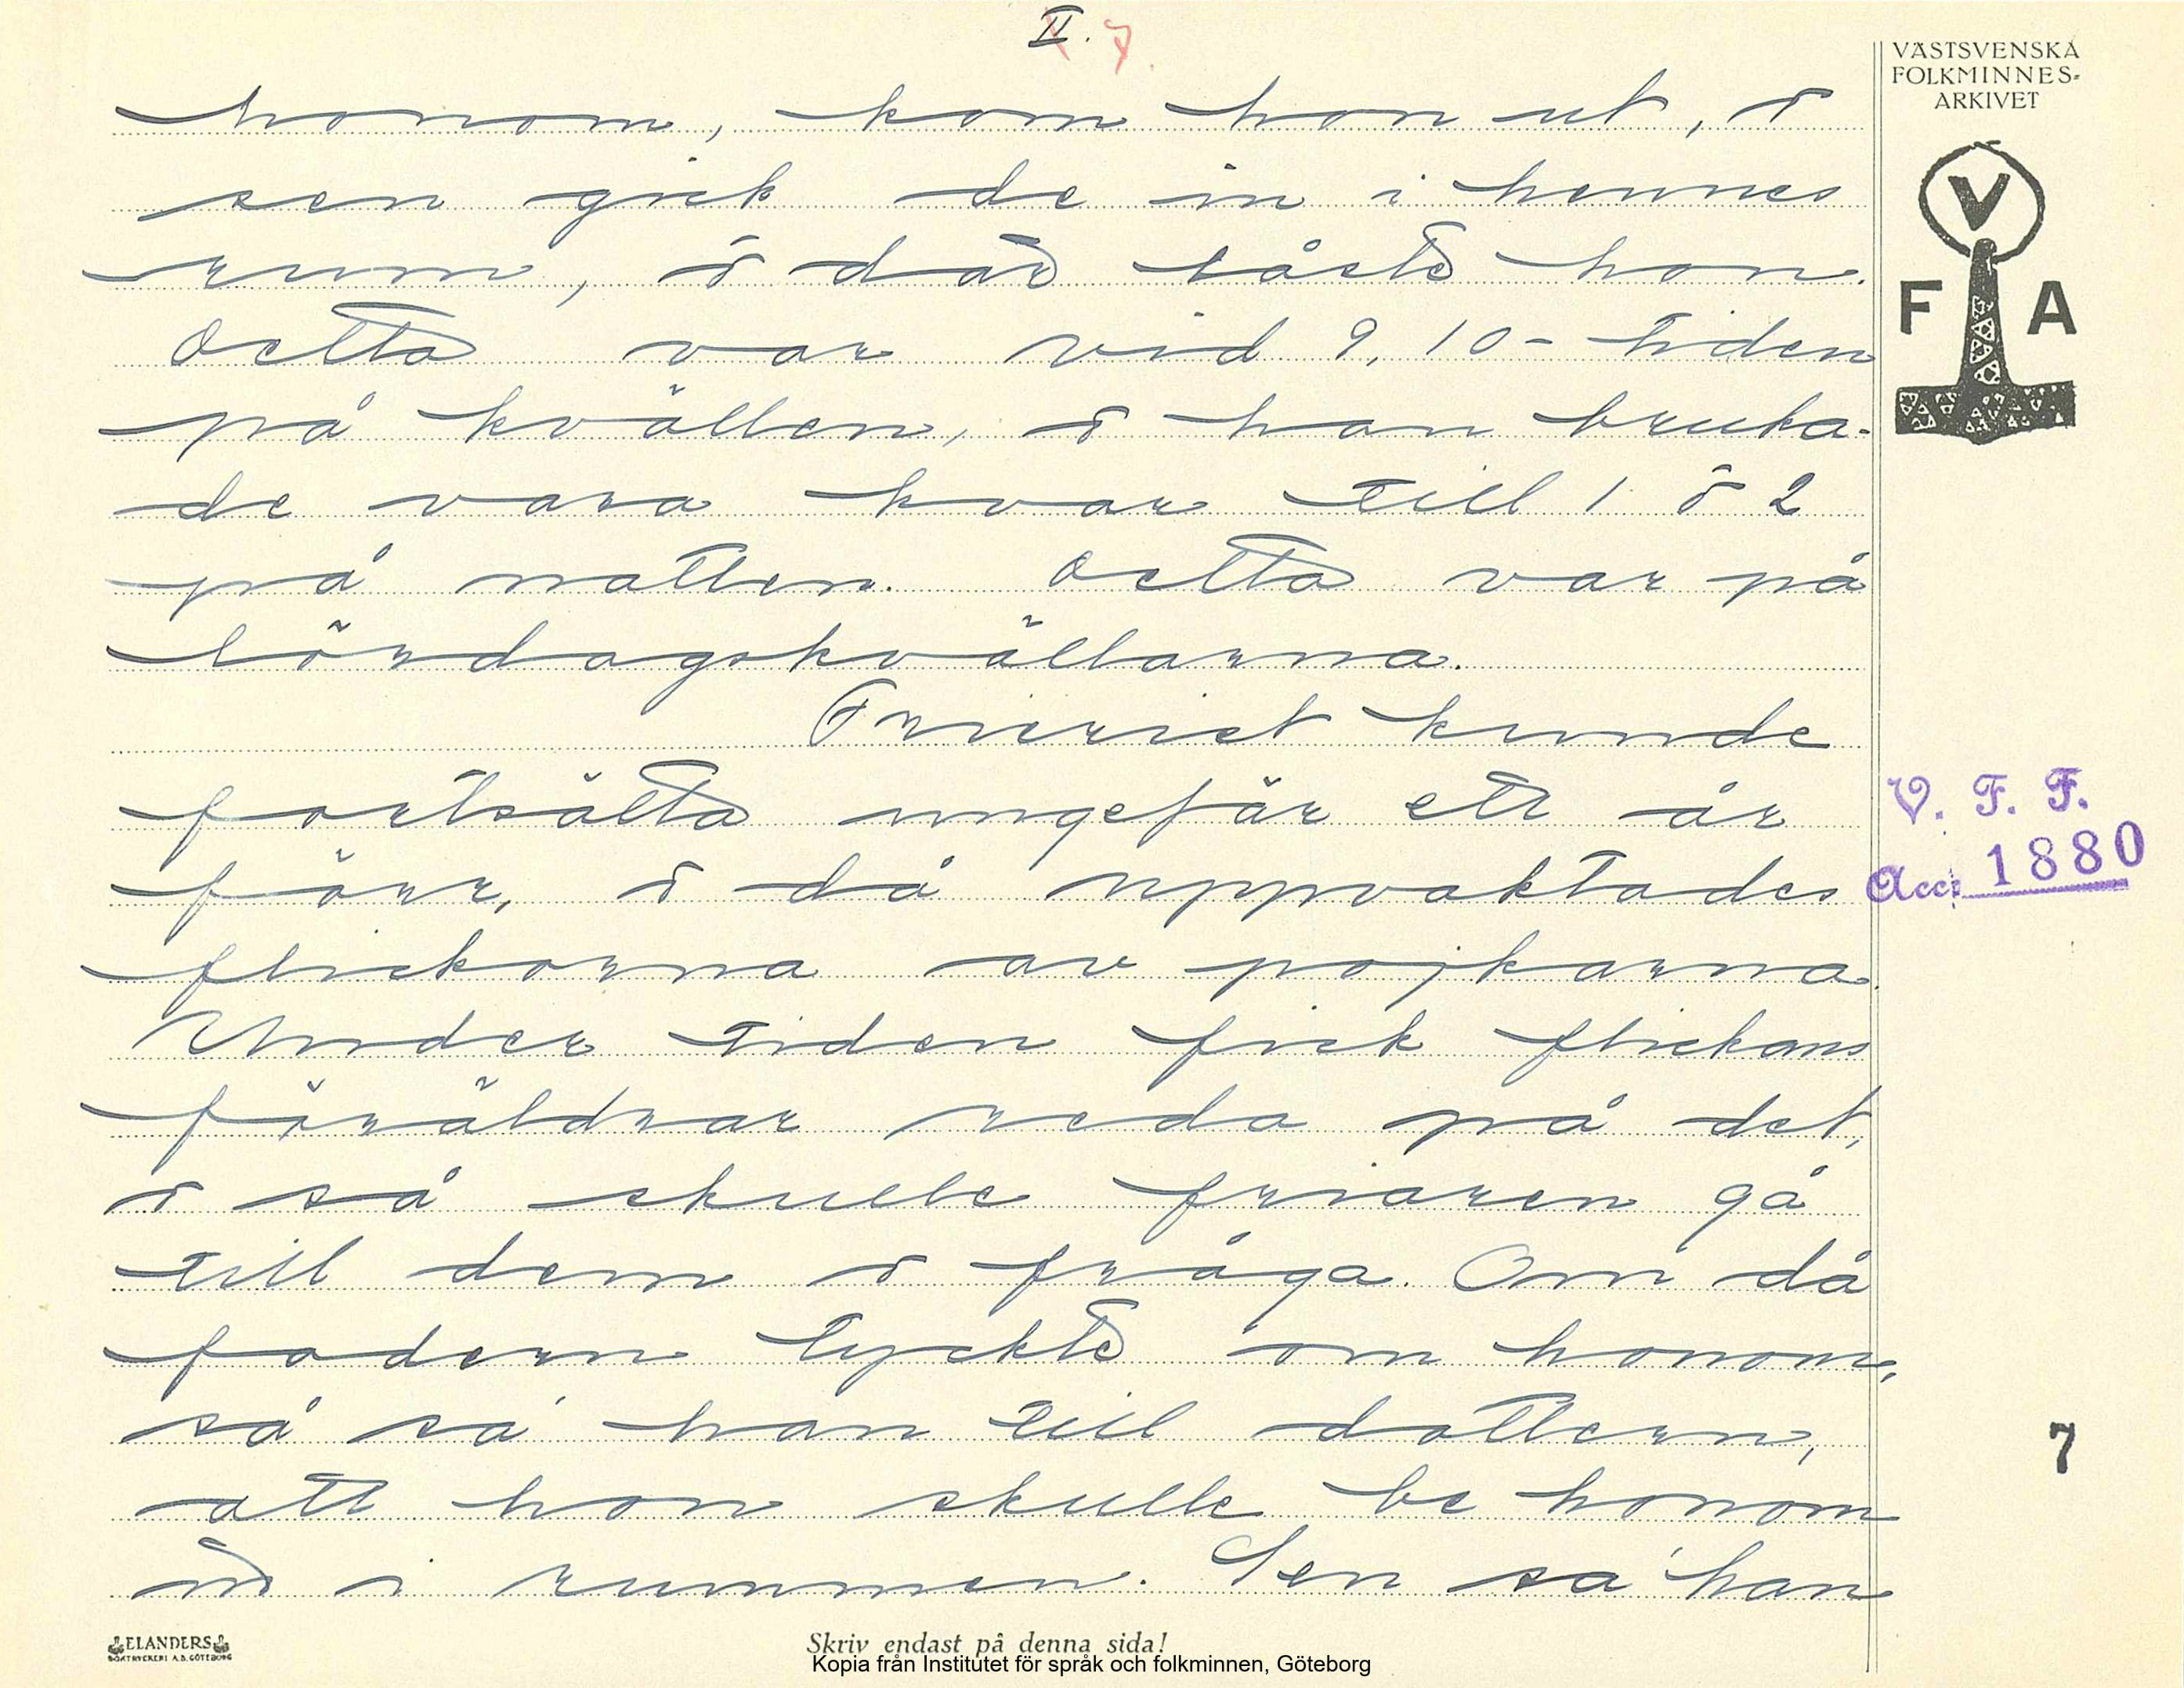 II. 7.
VÄSTSVENSKA
FOLKMINNES-
ARKIVET
V
F A
honom, kom hon ut, å
sen gick de in i hennes
rum, å då låste hon.
Detta var vid 9, 10-tiden
på kvällen, å han bruka-
de vara kvar till 1 å 2
på natten. Detta var på
lördagskvällarna.
Frieriet kunde
fortsätta ungefär ett år
förr, å då uppvaktades
flickorna av pojkarna.
Under tiden fick flickans
föräldrar reda på det,
å så skulle friaren gå
till dem å fråga. Om då
fadern tyckte om honom,
så sa' han till dottern,
att hon skulle be honom
in i rummen. Sen sa' han
V. F. F.
Acc. 1880
7
ELANDERS
BOKTRYCKERI A.B. GÖTEBORG
Skriv endast på denna sida!
Kopia från Institutet för språk och folkminnen, Göteborg